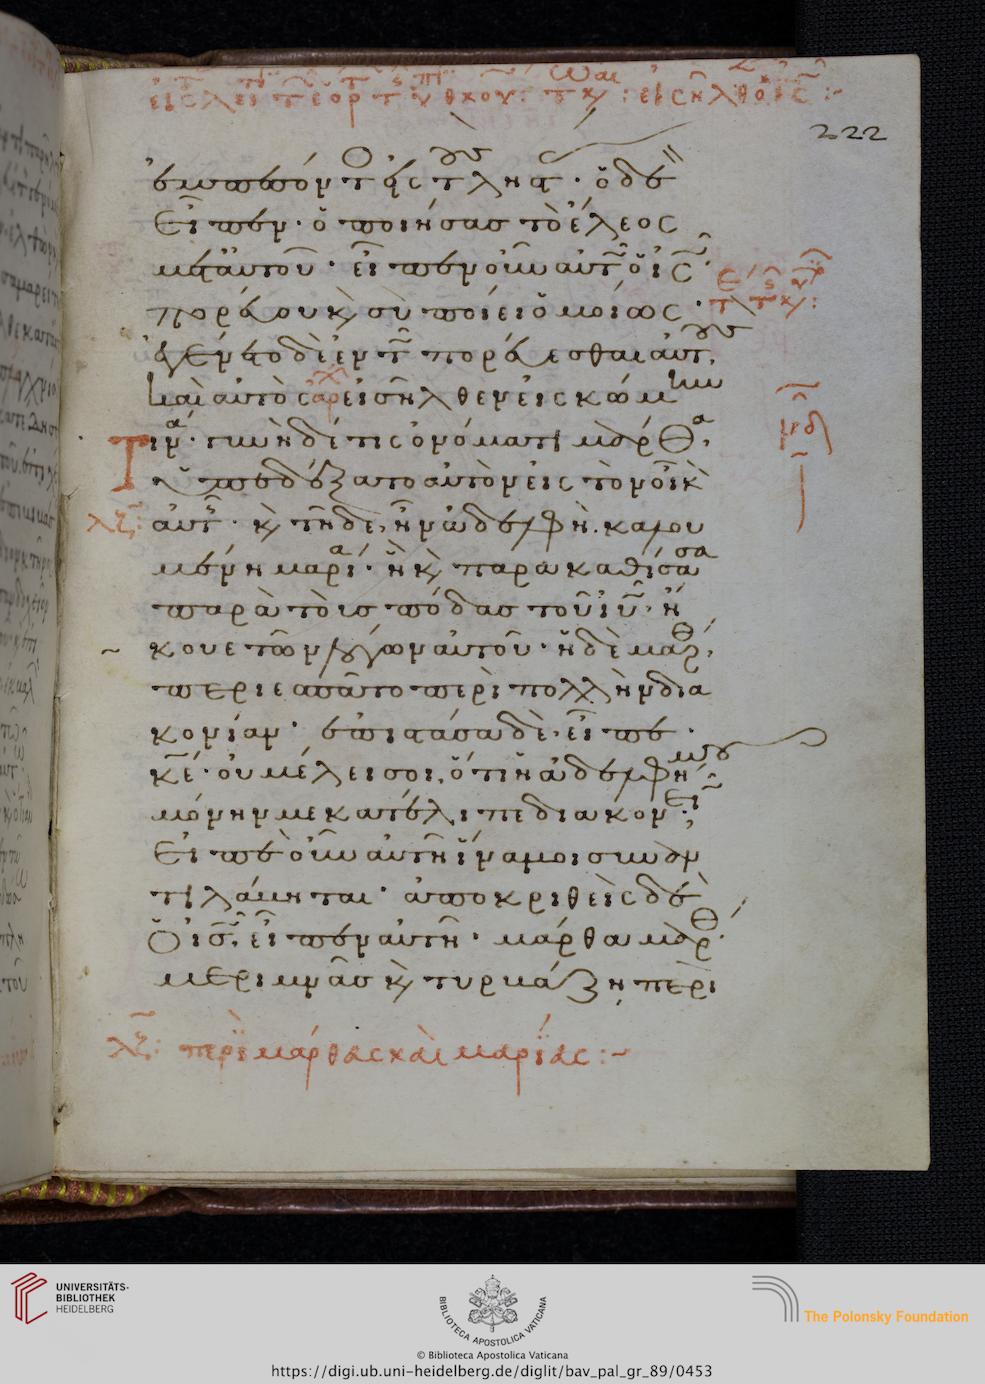 222
ἐμπεσόντος εἰς τοὺς ληστάς· ὁ δὲ
εἶπεν· ὁ ποιήσας τὸ ἔλεος
μετ' αὐτοῦ· εἶπεν οὖν αὐτῷ ὁ ις
πορεύου κ σὺ ποίει ὁμοίως·
ἐγένετο δὲ ἐν τῷ πορεύεσθαι αὐτοὺς,
καὶ αὐτὸς εἰσῆλθεν εἰς κώμην
τινά· γυνὴ δέ τις ὀνόματι μάρθα,
ὑπεδέξατο αὐτὸν εἰς τὸν οἶκ
αὐτῆς· κ τῇδε ἦν ἀδελφὴ καλου
μένη μαρία· ἣ κ παρακαθίσασα
παρὰ τοὺς πόδας τοῦ ιυ· ἤ
κουε τῶν λόγων αὐτοῦ· ἡ δὲ μάρθ
περιεσπᾶτο περὶ πολλὴν δια
κονίαν· ἐπιστᾶσα δὲ εἶπε·
κε· οὐ μέλει σοι, ὅτι ἡ ἀδελφή μου
μόνην με κατέλιπε διακονεῖν;
εἰπὲ οὖν αὐτῇ ἵνα μοι συναν
τιλάβηται· ἀποκριθεὶς δὲ
ὁ ις, εἶπεν αὐτῇ· μάρθα μάρθ·
μεριμνᾷς κ τυρβάζῃ περὶ
λζ: περὶ μάρθας καὶ μαρίας:
UNIVERSITÄTS-
BIBLIOTHEK
HEIDELBERG
BIBLIOTECA APOSTOLICA VATICANA
The Polonsky Foundation
© Biblioteca Apostolica Vaticana
https://digi.ub.uni-heidelberg.de/diglit/bav_pal_gr_89/0453